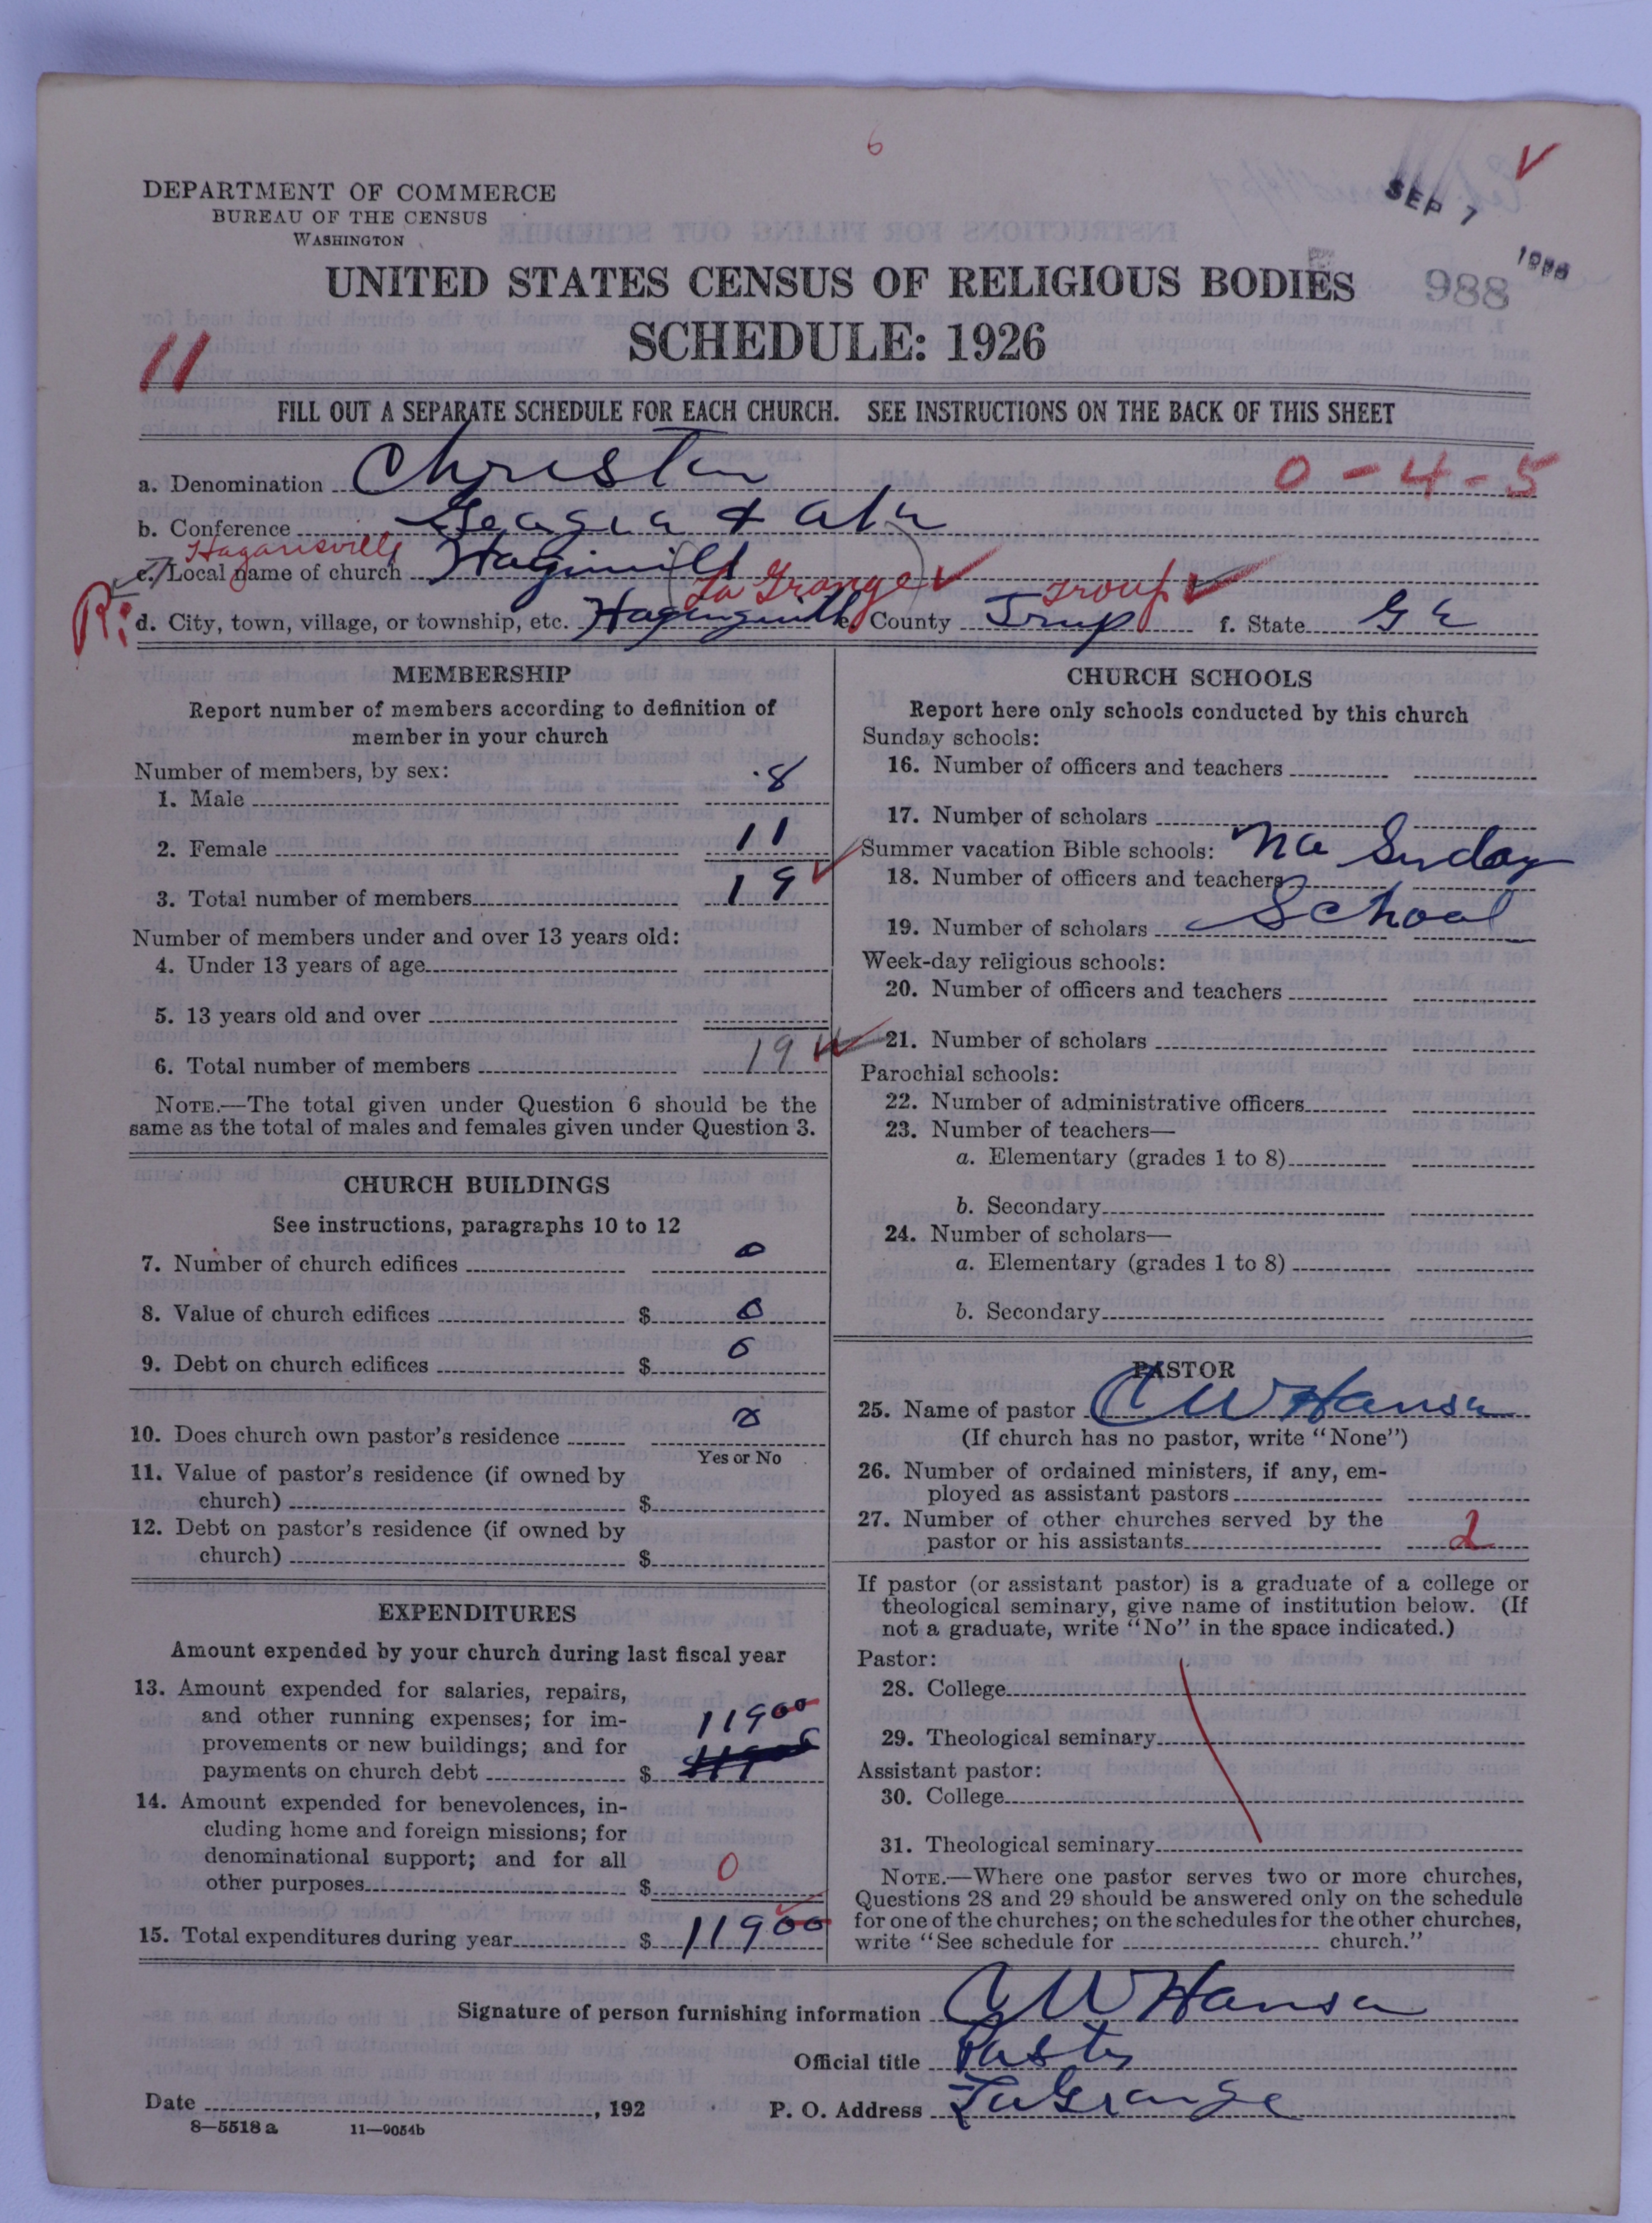 6
V
SEP 7
988
DEPARTMENT OF COMMERCE
BUREAU OF THE CENSUS
WASHINGTON
UNITED STATES CENSUS OF RELIGIOUS BODIES
SCHEDULE: 1926
11
FILL OUT A SEPARATE SCHEDULE FOR EACH CHURCH. SEE INSTRUCTIONS ON THE BACK OF THIS SHEET
a. Denomination Christian 0-4-5
b. Conference Georgia + Ala
Hogansville
c. Local name of church
La Grange Troup
d. City, town, village, or township, etc. e. County Troup f. State Ga
MEMBERSHIP
Report number of members according to definition of
member in your church
Number of members, by sex:
1. Male 8
2. Female 11
3. Total number of members 19
Number of members under and over 13 years old:
4. Under 13 years of age
5. 13 years old and over
6. Total number of members 19
NOTE.—The total given under Question 6 should be the
same as the total of males and females given under Question 3.
CHURCH BUILDINGS
See instructions, paragraphs 10 to 12
7. Number of church edifices 0
8. Value of church edifices $ 0
9. Debt on church edifices $ 0
10. Does church own pastor's residence
Yes or No
11. Value of pastor's residence (if owned by
church) $
12. Debt on pastor's residence (if owned by
church) $
EXPENDITURES
Amount expended by your church during last fiscal year
13. Amount expended for salaries, repairs,
and other running expenses; for im-
provements or new buildings; and for
payments on church debt $ 119 00
14. Amount expended for benevolences, in-
cluding home and foreign missions; for
denominational support; and for all
other purposes $ 0
15. Total expenditures during year $ 119 00
CHURCH SCHOOLS
Report here only schools conducted by this church
Sunday schools:
16. Number of officers and teachers
17. Number of scholars
Summer vacation Bible schools: No Sunday
18. Number of officers and teachers
School
19. Number of scholars
Week-day religious schools:
20. Number of officers and teachers
21. Number of scholars
Parochial schools:
22. Number of administrative officers
23. Number of teachers—
a. Elementary (grades 1 to 8)
b. Secondary
24. Number of scholars—
a. Elementary (grades 1 to 8)
b. Secondary
PASTOR
25. Name of pastor C W Hanson
(If church has no pastor, write "None")
26. Number of ordained ministers, if any, em-
ployed as assistant pastors
27. Number of other churches served by the
pastor or his assistants 2
If pastor (or assistant pastor) is a graduate of a college or
theological seminary, give name of institution below. (If
not a graduate, write "No" in the space indicated.)
Pastor:
28. College
29. Theological seminary
Assistant pastor:
30. College
31. Theological seminary
NOTE.—Where one pastor serves two or more churches,
Questions 28 and 29 should be answered only on the schedule
for one of the churches; on the schedules for the other churches,
write "See schedule for church."
Signature of person furnishing information C W Hanson
Official title Pastor
Date , 192 P. O. Address LaGrange
8—5518 a 11—9054b